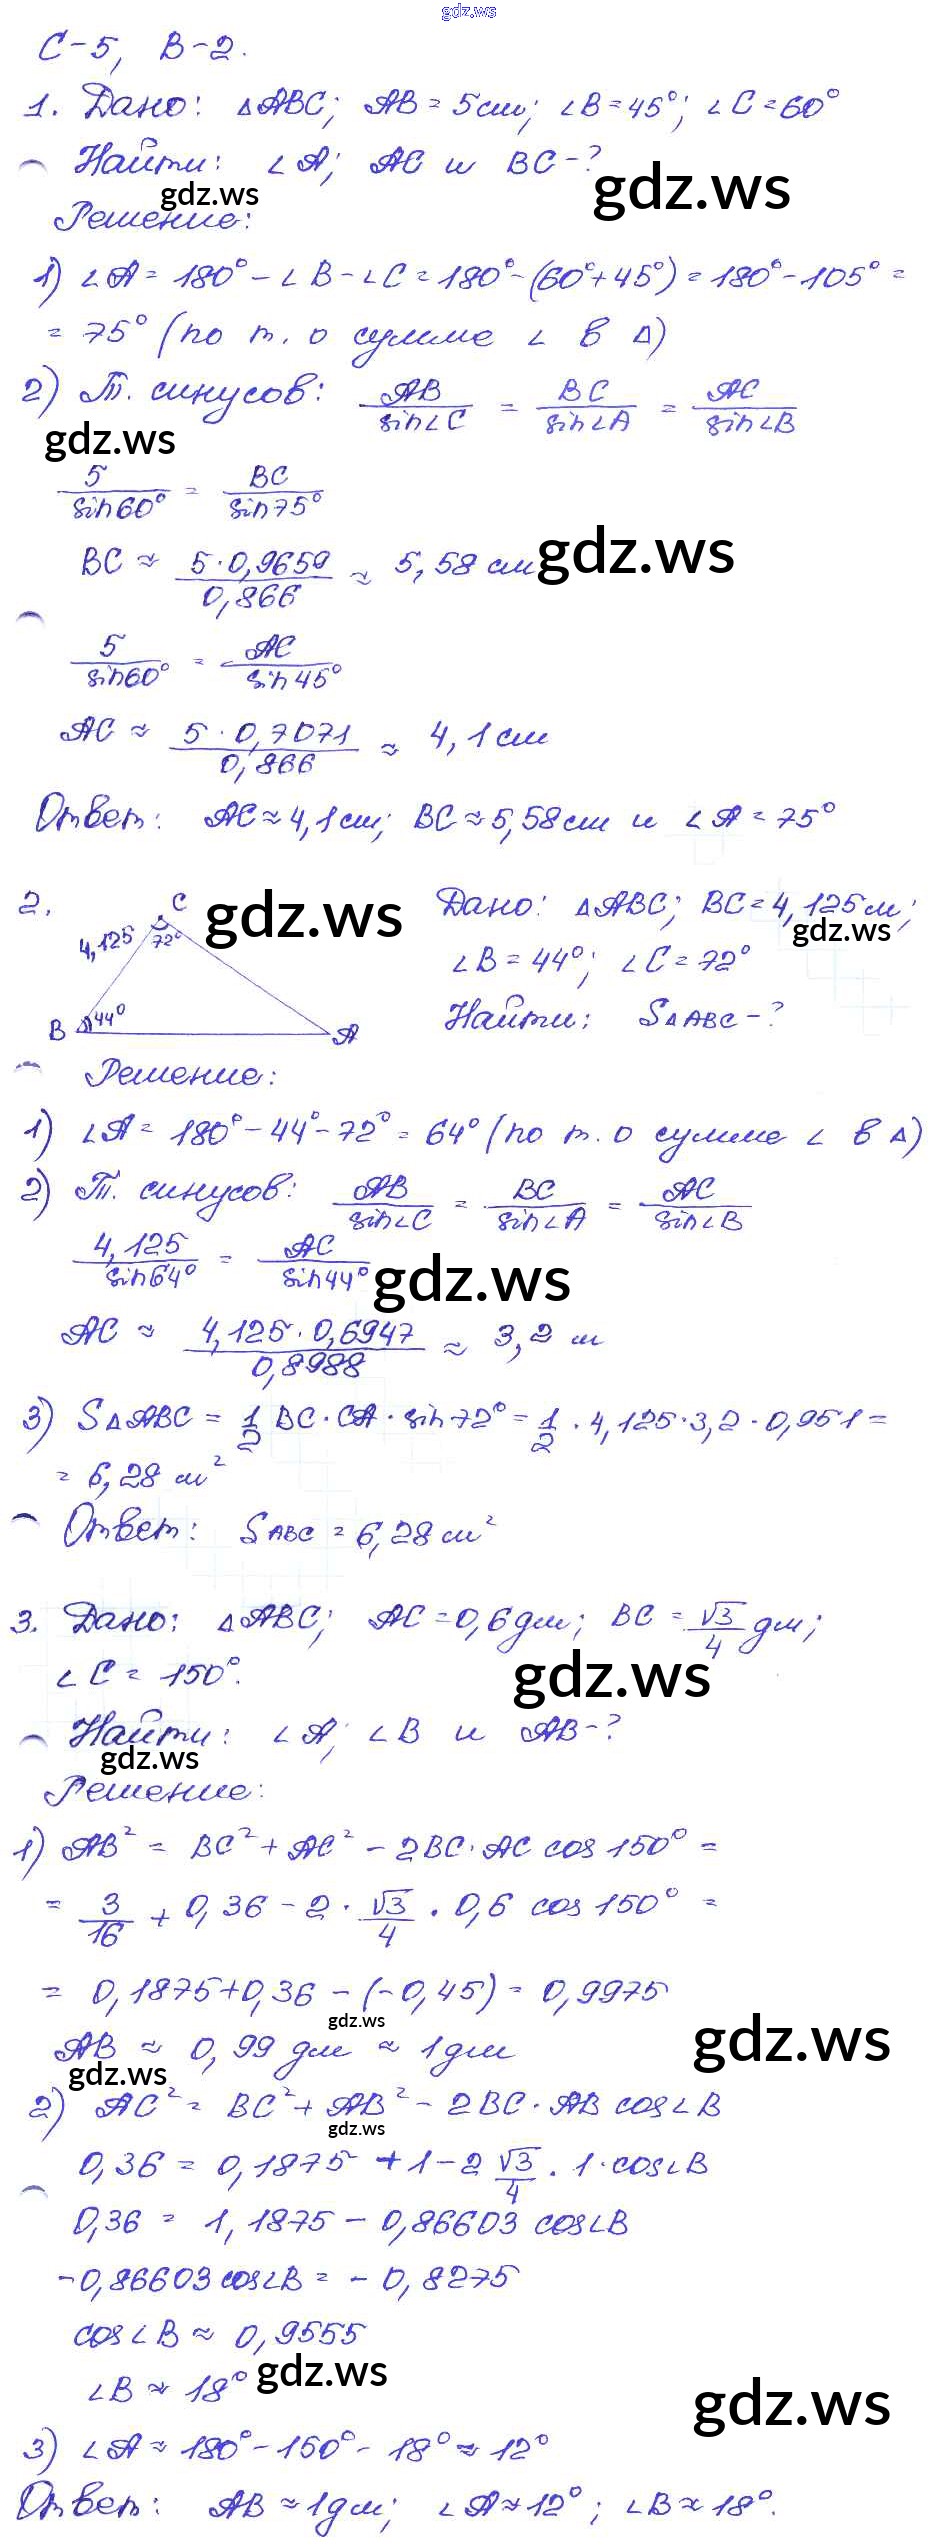 gdz.ws
С-5, В-2.
1. Дано: △ABC; AB = 5см; ∠B = 45°; ∠C = 60°
Найти: ∠A; AC и BC - ?
gdz.ws
gdz.ws
Решение:
1) ∠A = 180° - ∠B - ∠C = 180° - (60° + 45°) = 180° - 105° =
= 75° (по т. о сумме ∠ в △)
2) Т. синусов: AB/sin∠C = BC/sin∠A = AC/sin∠B
gdz.ws
5/sin60° = BC/sin75°
BC ≈ 5·0,9659/0,866 ≈ 5,58 см
gdz.ws
5/sin60° = AC/sin45°
AC ≈ 5·0,7071/0,866 ≈ 4,1 см
Ответ: AC ≈ 4,1см; BC ≈ 5,58см и ∠A = 75°
2.
C
4,125
72°
B
44°
A
gdz.ws
Дано: △ABC; BC = 4,125м;
gdz.ws
∠B = 44°; ∠C = 72°
Найти: S△ABC - ?
Решение:
1) ∠A = 180° - 44° - 72° = 64° (по т. о сумме ∠ в △)
2) Т. синусов: AB/sin∠C = BC/sin∠A = AC/sin∠B
4,125/sin64° = AC/sin44°
gdz.ws
AC ≈ 4,125·0,6947/0,8988 ≈ 3,2 м
3) S△ABC = 1/2 BC·CA·sin72° = 1/2 · 4,125·3,2·0,951 =
= 6,28 м²
Ответ: SABC = 6,28 м²
3. Дано: △ABC; AC = 0,6дм; BC = √3/4 дм;
∠C = 150°.
gdz.ws
Найти: ∠A; ∠B и AB - ?
gdz.ws
Решение:
1) AB² = BC² + AC² - 2BC·AC cos150° =
= 3/16 + 0,36 - 2·√3/4·0,6 cos150° =
= 0,1875 + 0,36 - (-0,45) = 0,9975
gdz.ws
AB ≈ 0,99 дм ≈ 1дм
gdz.ws
gdz.ws
2) AC² = BC² + AB² - 2BC·AB cos∠B
gdz.ws
0,36 = 0,1875 + 1 - 2 √3/4 · 1·cos∠B
0,36 = 1,1875 - 0,86603 cos∠B
-0,86603 cos∠B = -0,8275
cos∠B ≈ 0,9555
∠B ≈ 18°
gdz.ws
gdz.ws
3) ∠A ≈ 180° - 150° - 18° ≈ 12°
Ответ: AB ≈ 1дм; ∠A ≈ 12°; ∠B ≈ 18°.